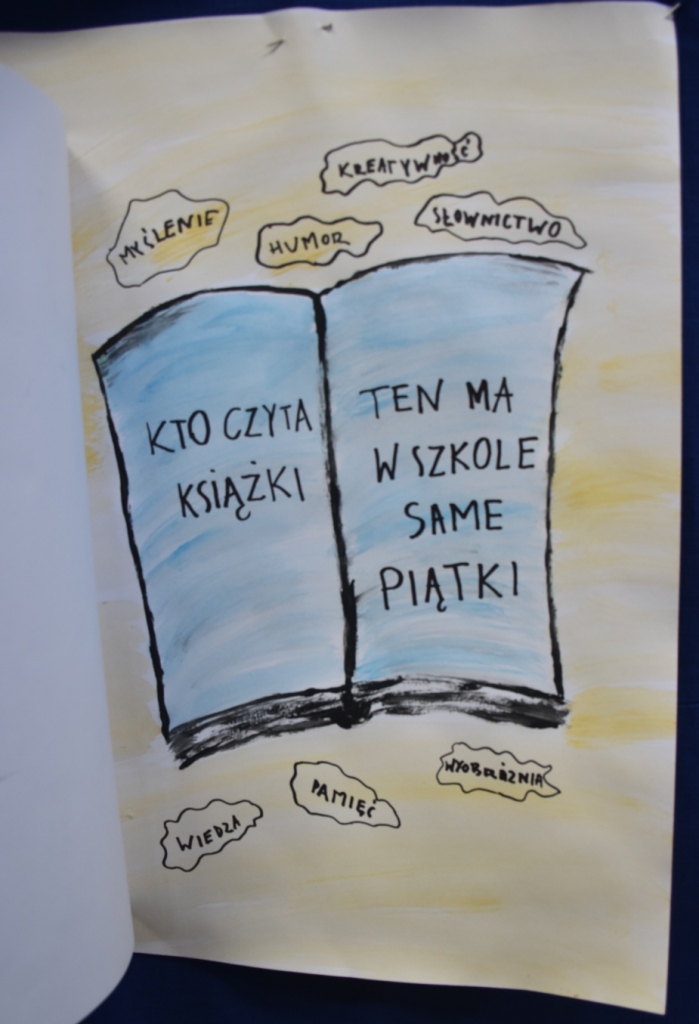 KREATYWNOŚĆ
MYŚLENIE
HUMOR
SŁOWNICTWO
KTO CZYTA
KSIĄŻKI
TEN MA
W SZKOLE
SAME
PIĄTKI
WIEDZA
PAMIĘĆ
WYOBRAŹNIA